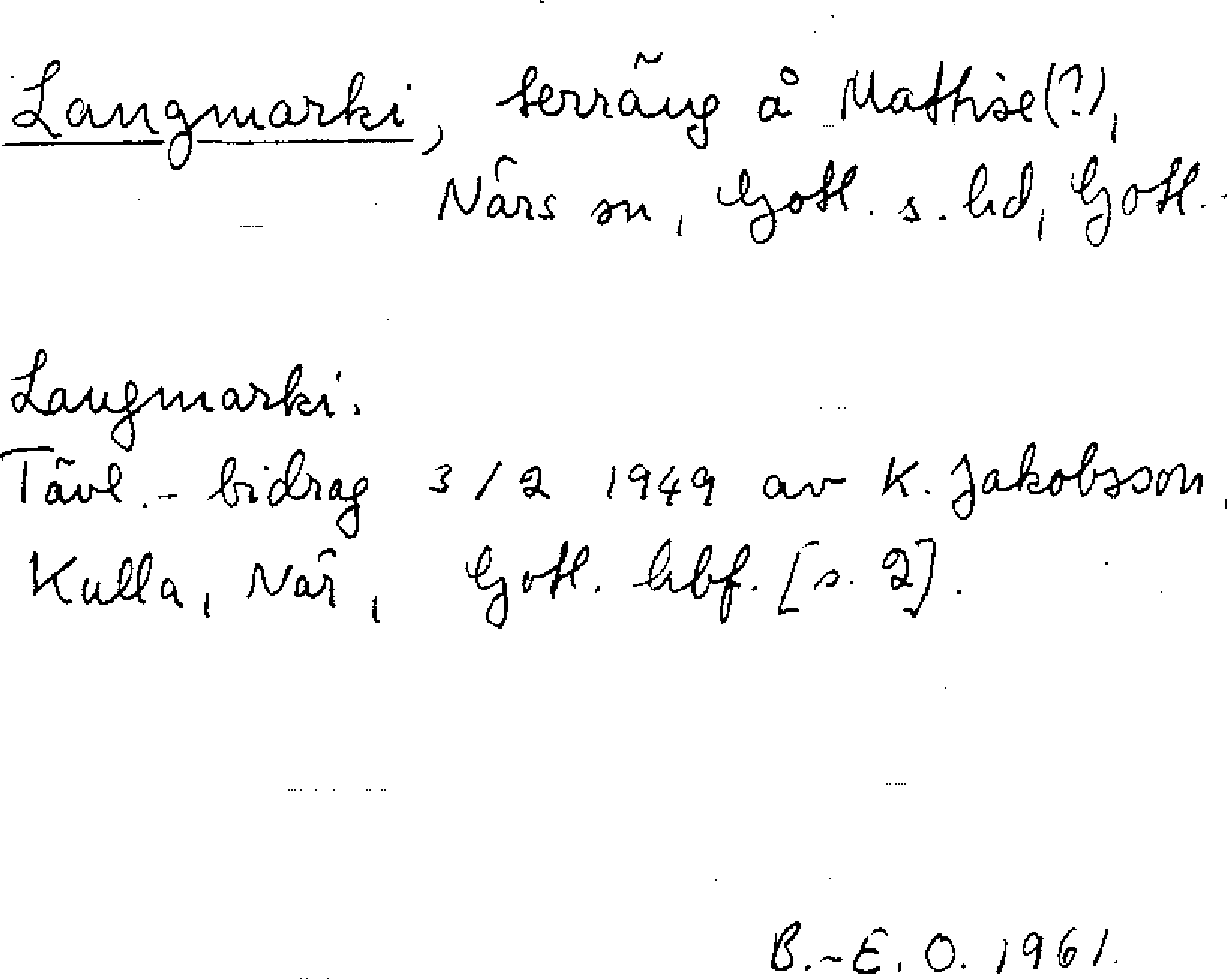 Langmarki, terräng å Mathise(?),
Närs sn, Gotl. s. hd, Gotl.
Langmarki.
Tävl.-bidrag 3/2 1949 av K. Jakobsson,
Kulla, När, Gotl. hbf. [s. 2].
B.-E. O. 1961.